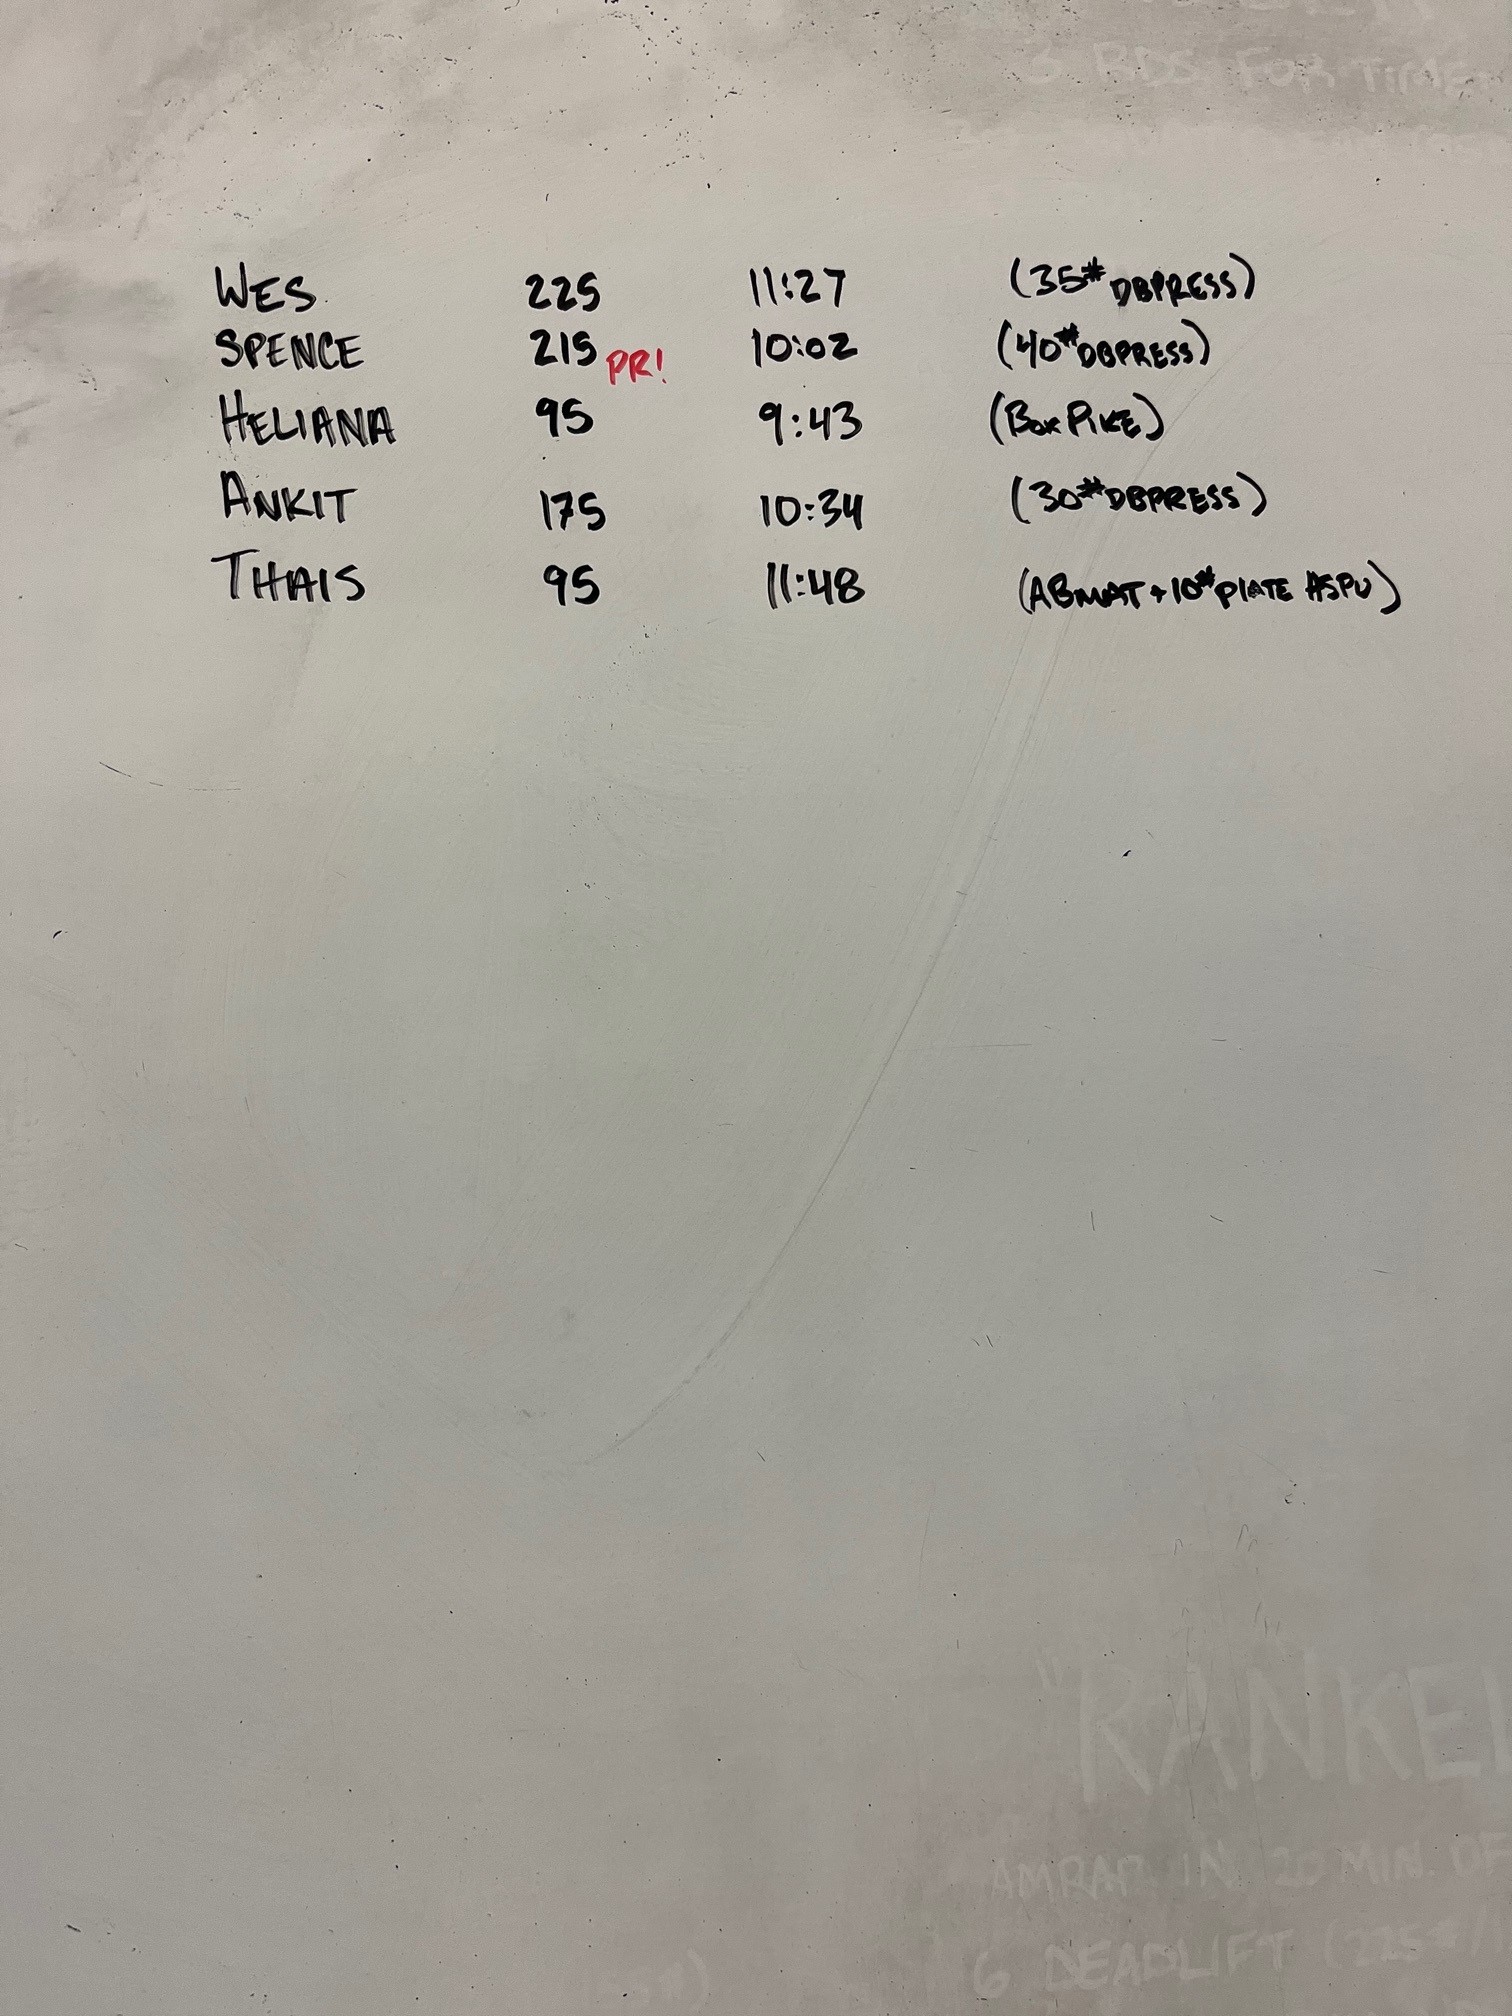 3 RDS FOR TIME
WES 225 11:27 (35# DBPRESS)
SPENCE 215 PR! 10:02 (40# DBPRESS)
HELIANA 95 9:43 (BOX PIKE)
ANKIT 175 10:34 (30# DBPRESS)
THAIS 95 11:48 (ABMAT + 10# PLATE HSPU)
"RANKEI
AMRAP IN 20 MIN. OF
6 DEADLIFT (225#/1